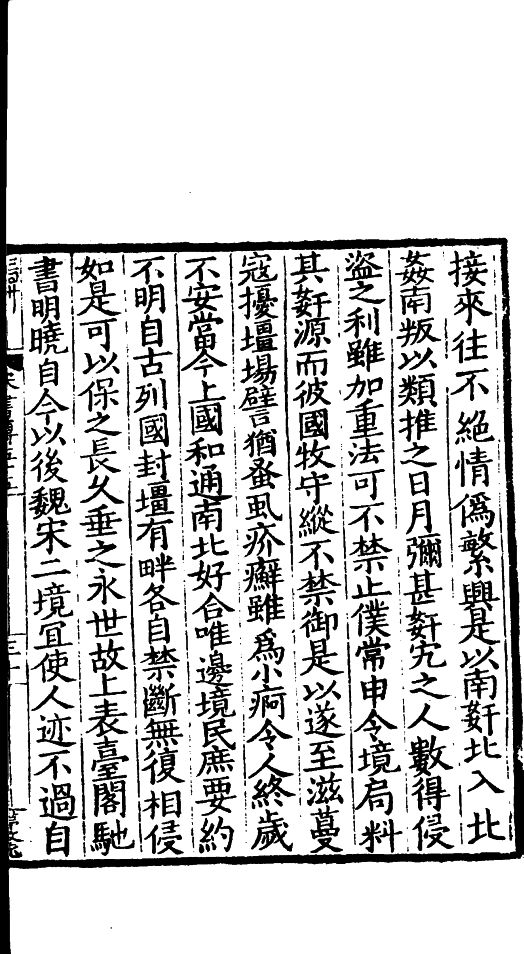 接來往不絕情僞繁興是以南姧北入北
姦南叛以類推之日月彌甚姧宄之人數得侵
盜之利雖加重法可不禁止僕常申令境局料
其姧源而彼國牧守縱不禁御是以遂至滋蔓
寇擾壃場譬猶蚤虱疥癬雖爲小痾令人終歲
不安當今上國和通南北好合唯邊境民庶要約
不明自古列國封壃有畔各自禁斷無復相侵
如是可以保之長久垂之永世故上表臺閣馳
書明曉自今以後魏宋二境宜使人迹不過自